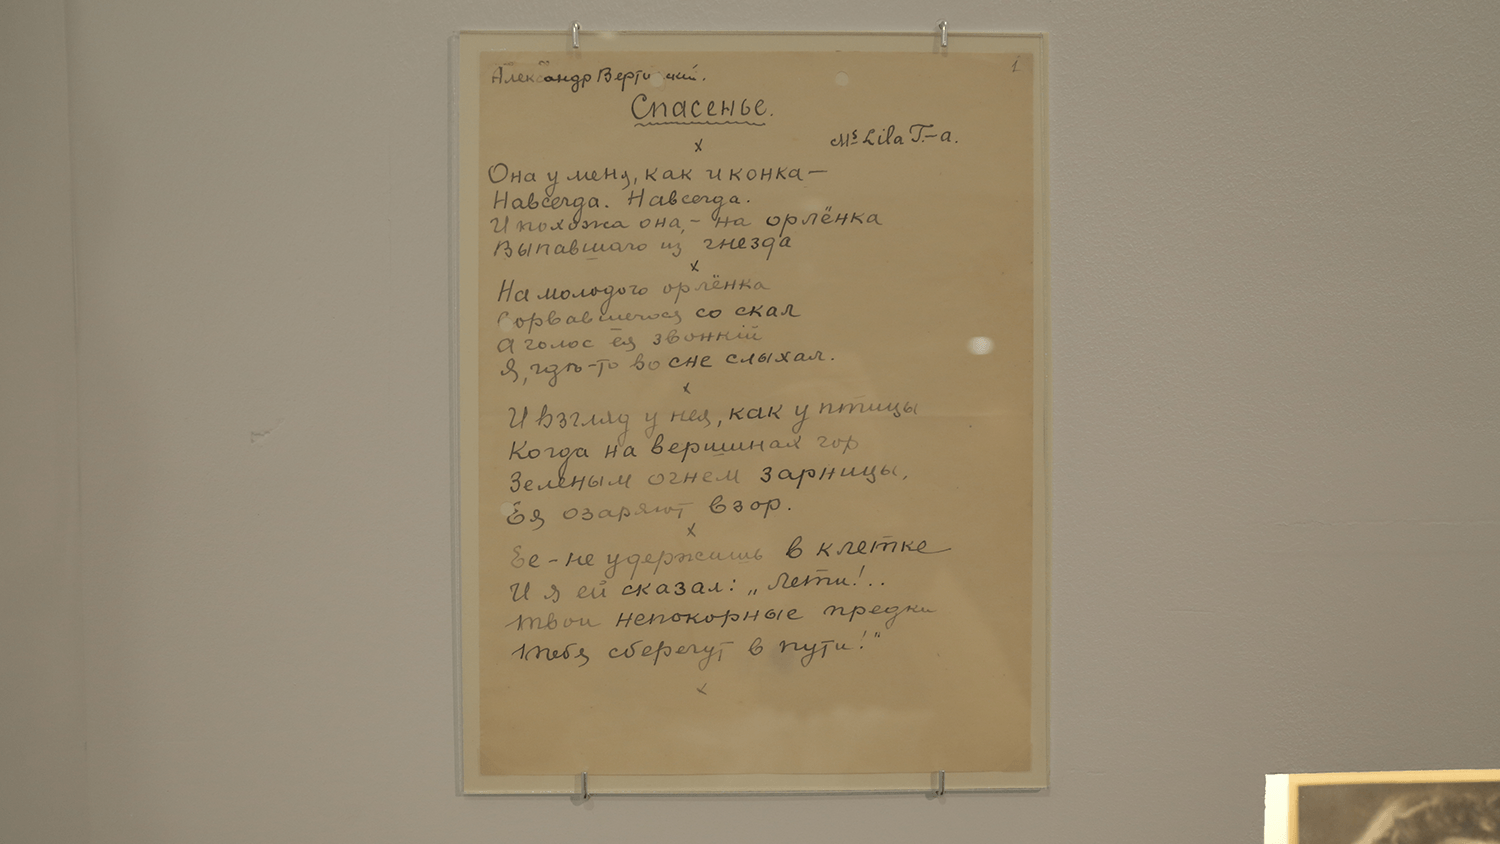 Александр Вертинский.
1
Спасенье.
Ms Lila T.-a.
x
Она у меня, как иконка —
Навсегда. Навсегда.
И похожа она, – на орлёнка
Выпавшаго из гнезда
x
На молодого орлёнка
Сорвавшегося со скал
А голос ея звонкій
Я, гдѣ-то во сне слыхал.
x
И взгляд у нея, как у птицы
Когда на вершинах гор
Зеленым огнем зарницы,
Ея озаряют взор.
x
Ее – не удержишь в клетке
И я ей сказал: „Лети!..
Твои непокорные предки
Тебя сберегут в пути!"
x